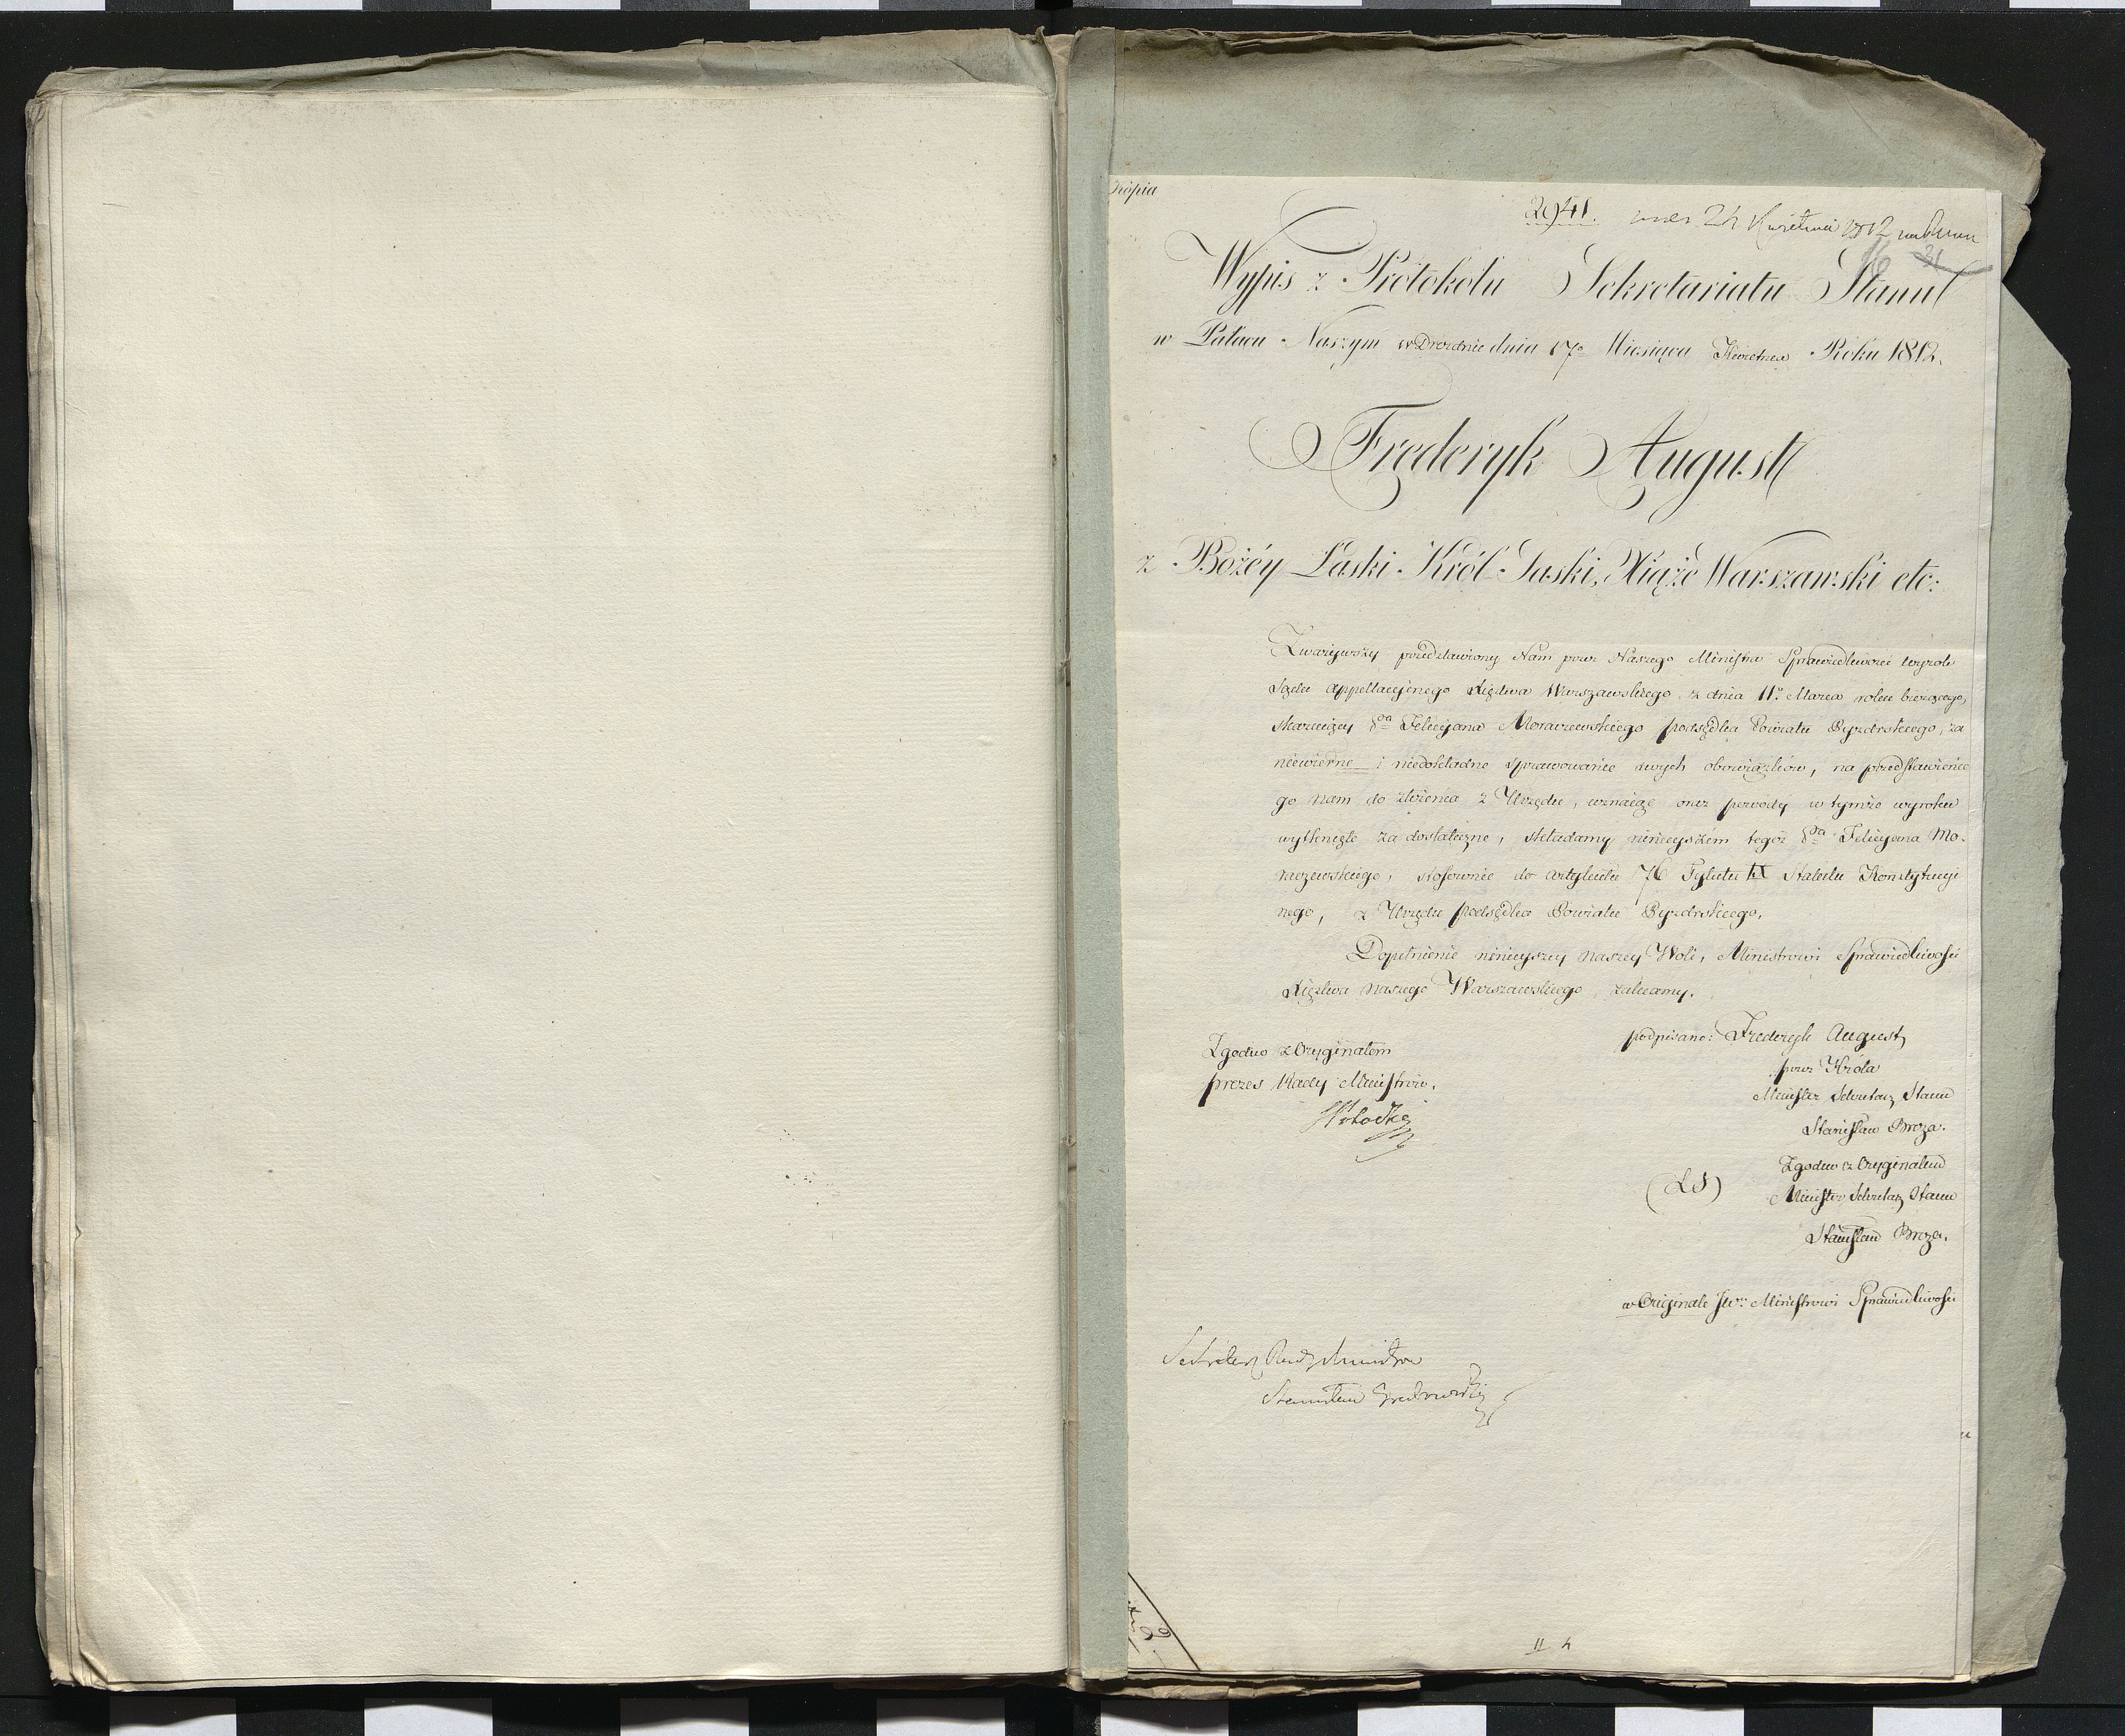 Kópia
2941. 24 Kwietnia 1812
16 31
Wypis z Protokołu Sekretariatu Stanu
w Pałacu Naszym w Dreźnie dnia 17º Miesiąca Kwietnia Roku 1812.
Frederyk August
z Bożéy Łaski Król Saski, Xiąże Warszawski etc:
Zważywszy przedstawiony Nam przez Naszego Ministra Sprawiedliwości wyrok
Sądu Appellacyinego Xięstwa Warszawskiego z dnia 11º Marca roku bieżącego,
skazuiący Felicyana Morawskiego podsędka Powiatu Pyzdrskiego, za
niewierne i niedokładne sprawowanie swych obowiązków, na przedstawienie
go nam do złożenia z Urzędu, uznaiąc oraz powody w tymże wyroku
wytknięte za dostateczne, składamy ninieyszém tegoż Felicyana Mo-
raczewskiego, stosownie do artykułu 76 Tytułu IX Statutu Konstytucyi
nego, z Urzędu podsędka Powiatu Pyzdrskiego.
Dopełnienie ninieyszey naszey Woli, Ministrowi Sprawiedliwości
Xięstwa naszego Warszawskiego, zalecamy.
podpisano: Frederyk August
przez Króla
Minister Sekretarz Stanu
Stanisław Breza.
Zgodno z Oryginałem
Prezes Rady Ministrów.
(LS)
Zgodno z Oryginałem
Minister Sekretarz Stanu
Stanisław Breza.
w Originale JW: Ministrowi Sprawiedliwości
Sekretarz Rady Ministrów
Stanisław Grabowski
II 4